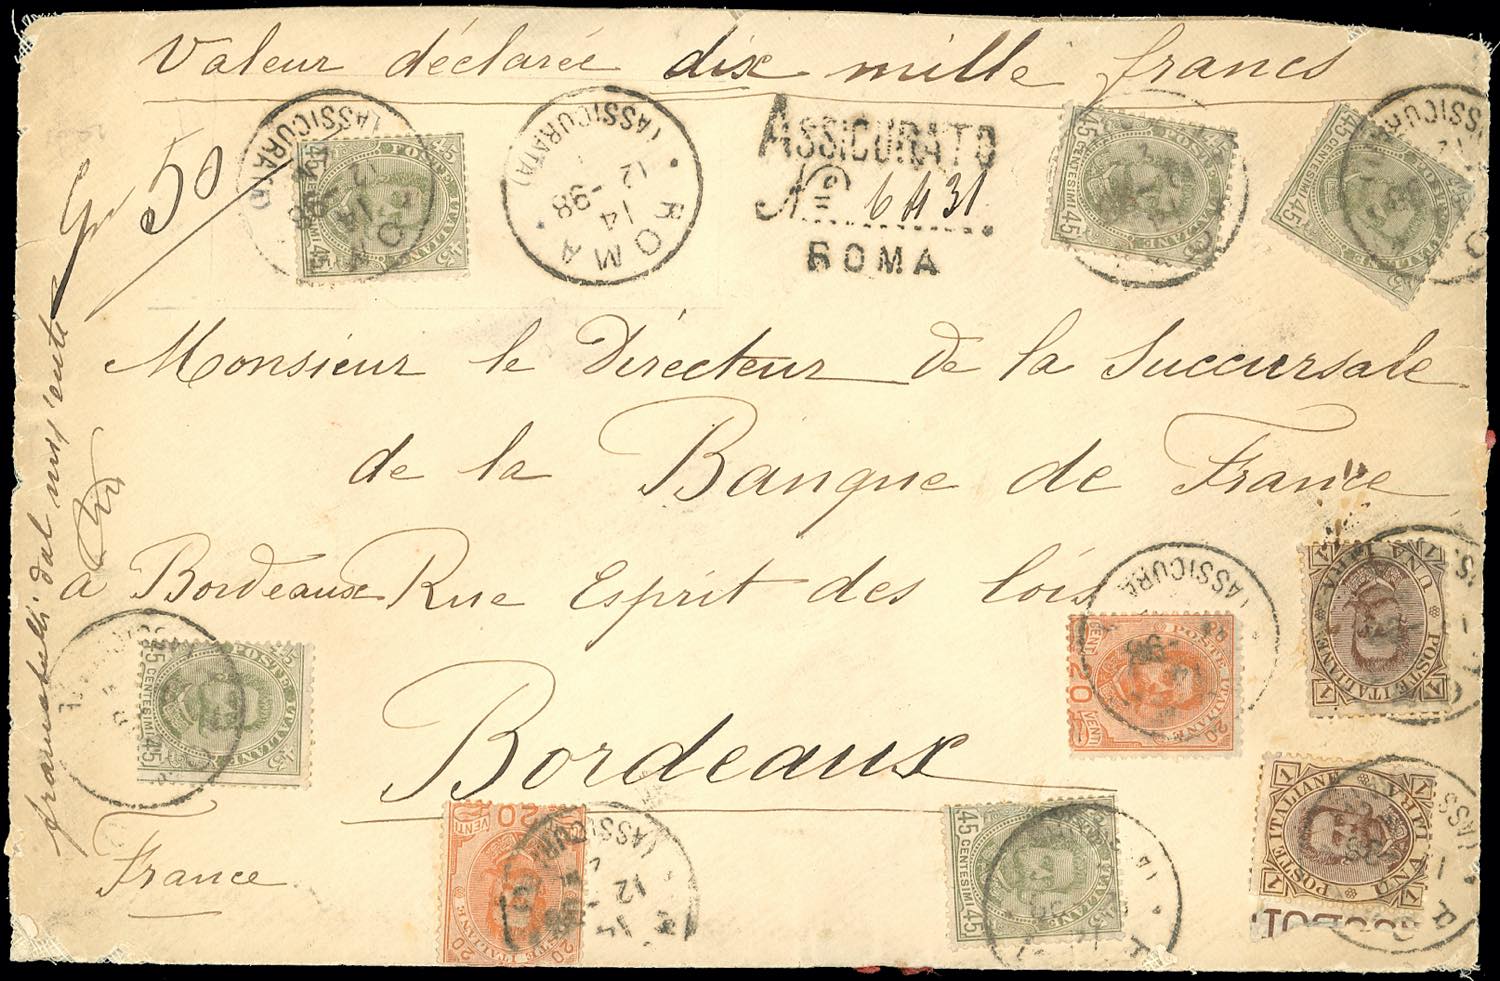 Valeur déclarée dix mille francs
Gr 50
(ASSICURATA)
ROMA
14
12 -98
(ASSICURATA)
ASSICURATO
No 6431
ROMA
Monsieur le Directeur de la Succursale
de la Banque de France
à Bordeaux Rue Esprit des lois
Bordeaux
France
POSTE ITALIANE
45 CENTESIMI 45
POSTE ITALIANE
45 CENTESIMI 45
POSTE ITALIANE
45 CENTESIMI 45
POSTE ITALIANE
45 CENTESIMI 45
POSTE ITALIANE
45 CENTESIMI 45
POSTE ITALIANE
20 VENTI
POSTE ITALIANE
20 VENTI
POSTE ITALIANE
1 UNA LIRA 1
POSTE ITALIANE
1 UNA LIRA 1